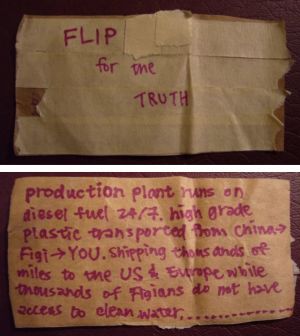 FLIP
for the
TRUTH
production plant runs on
diesel fuel 24/7. high grade
plastic transported from China→
Figi→YOU. Shipping thousands of
miles to the US & Europe while
thousands of Figians do not have
access to clean water..............